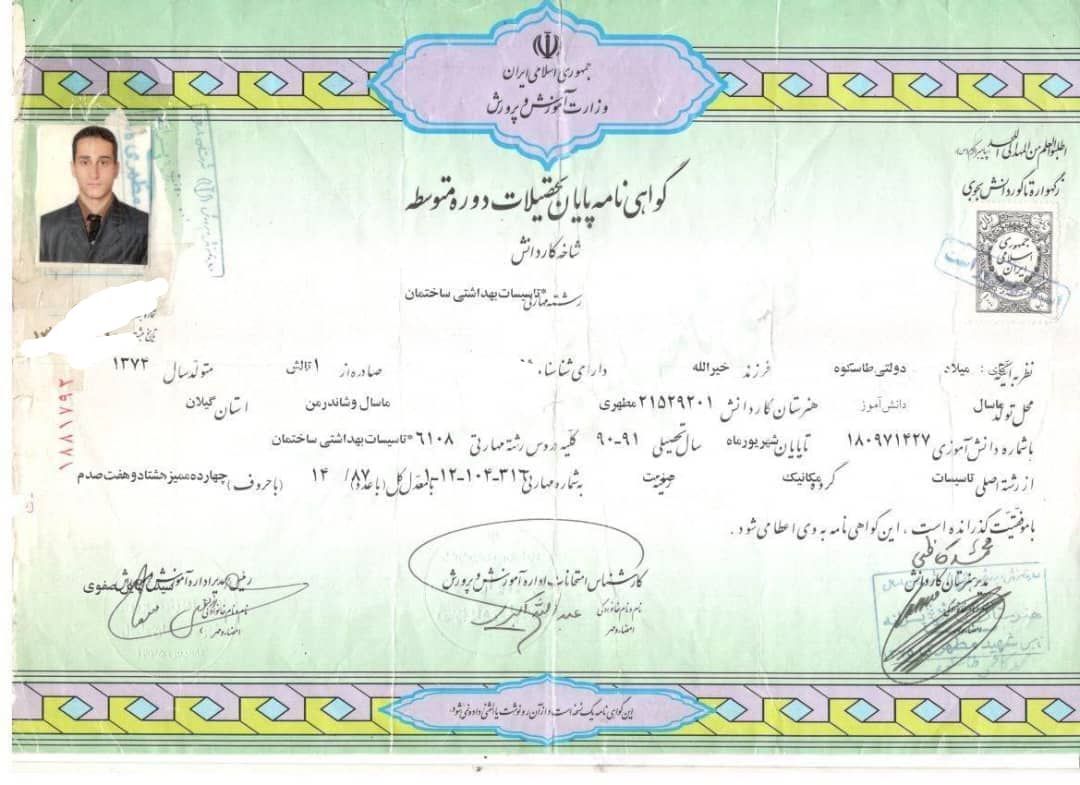 جمهوری اسلامی ایران
وزارت آموزش و پرورش
اطلبوا العلم من المهد الی اللحد
ز گهواره تا گور دانش بجوی
گواهی نامه پایان تحصیلات دوره متوسطه
شاخه کاردانش
رشته مهارتی: *تاسیسات بهداشتی ساختمان
جمهوری
اسلامی
ایران
نظر به اینکه آقای: میلاد دولتی طاسکوه فرزند خیرالله دارای شناسنامه صادره از تالش متولد سال ۱۳۷۴
محل تولد ماسال دانش آموز هنرستان کاردانش ۲۱۵۲۹۲۰۱ مطهری ماسال و شاندرمن استان گیلان
با شماره دانش آموزی ۱۸۰۹۷۱۴۲۷ تا پایان شهریورماه سال تحصیلی ۹۰-۹۱ کلیه دروس رشته مهارتی ۶۱۰۸ *تاسیسات بهداشتی ساختمان
از رشته اصلی تاسیسات گروه مکانیک صنعت به شماره مهارتی ۱-۱۲-۱۰۴-۳۱۶ با معدل کل (با عدد) ۱۴/۸۷ (با حروف) چهارده ممیز هشتاد و هفت صدم
با موفقیت گذرانده است ، این گواهی نامه به وی اعطا می شود .
۱۸۸۱۷۹۲
محمد کاظمی
مدیر هنرستان کاردانش
کارشناس امتحانات اداره آموزش و پرورش
نام و نام خانوادگی
امضاء و مهر
رئیس / مدیر اداره آموزش و پرورش
صفوی
نام و نام خانوادگی
امضاء و مهر
شهید مطهری
این گواهی نامه یک نسخه است و از آن رونوشت یا المثنی داده نمی شود.